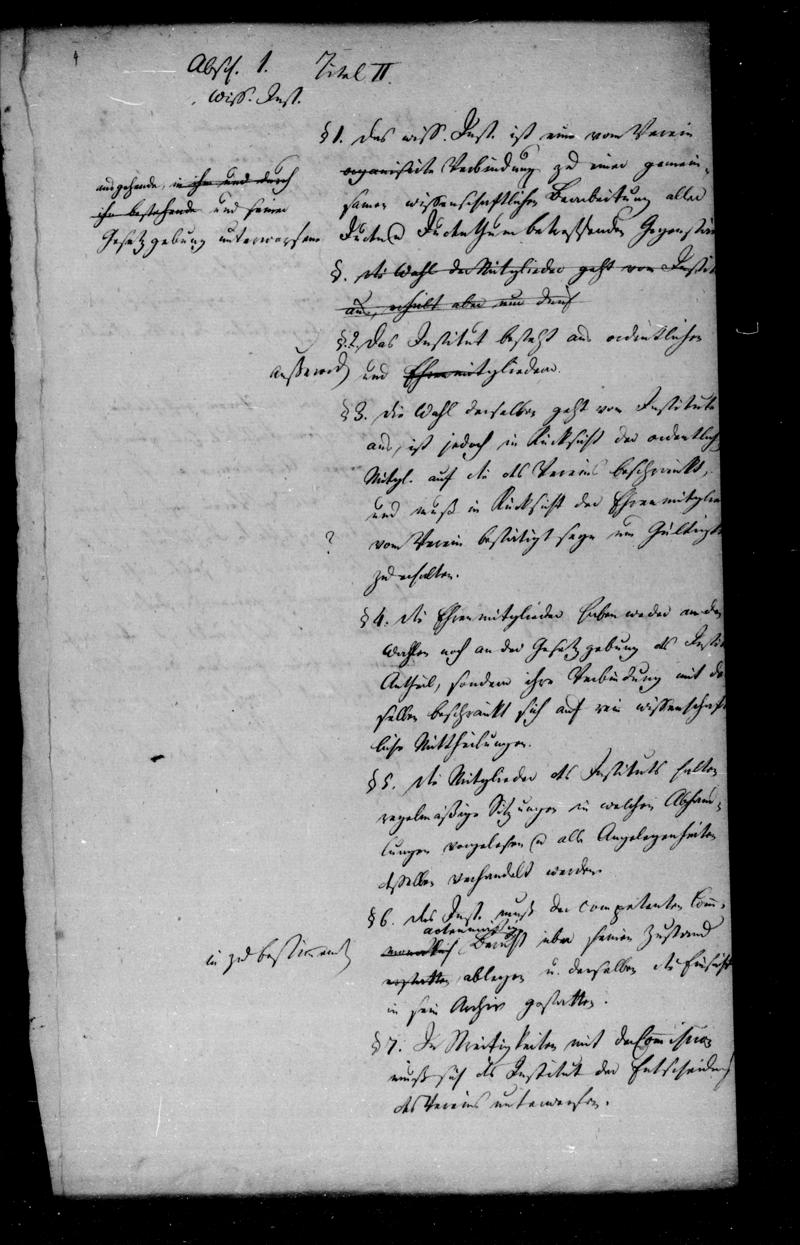 Absch. 1. Titel II.
Wiss. Inst.
§ 1. Das wiss. Inst. ist eine vom Verein
ausgehende, in ihm und durch
ihn bestehende und seiner
Gesetzgebung unterworfene
organisirte Verbindung zu einer gemein-
samen wissenschaftlichen Bearbeitung aller
Juden u Judenthum betreffenden Gegenstän
§. Die Wahl der Mitglieder geht vom Instit
aus, erhält aber nur durch
§. 2. Das Institut besteht aus ordentlichen
ausserord
und Ehrenmitgliedern.
§ 3. Die Wahl derselben geht vom Institute
aus, ist jedoch in Rücksicht der ordentlich
Mitgl. auf die des Vereins beschränkt,
und muß in Rücksicht der Ehrenmitglie
?
vom Verein bestätigt seyn um Gültigk
zu erhalten.
§ 4. Die Ehrenmitglieder haben weder an den
Wahlen noch an der Gesetzgebung des Instit
Antheil, sondern ihre Verbindung mit de
selben beschränkt sich auf rein wissenschaft
liche Mittheilungen.
§ 5. Die Mitglieder des Instituts halten
regelmäßige Sitzungen in welchen Abhand-
lungen vorgelesen u alle Angelegenheiten
desselben verhandelt werden.
§ 6. Das Inst. muß der competenten Comm-
monatlich Bericht über seinen Zustand
in zu bestimmend
erstatten, ablegen u. derselben die Einsicht
in sein Archiv gestatten.
§ 7. In Streitigkeiten mit der Commission
muß sich das Institut der Entscheidung
des Vereins unterwerfen.